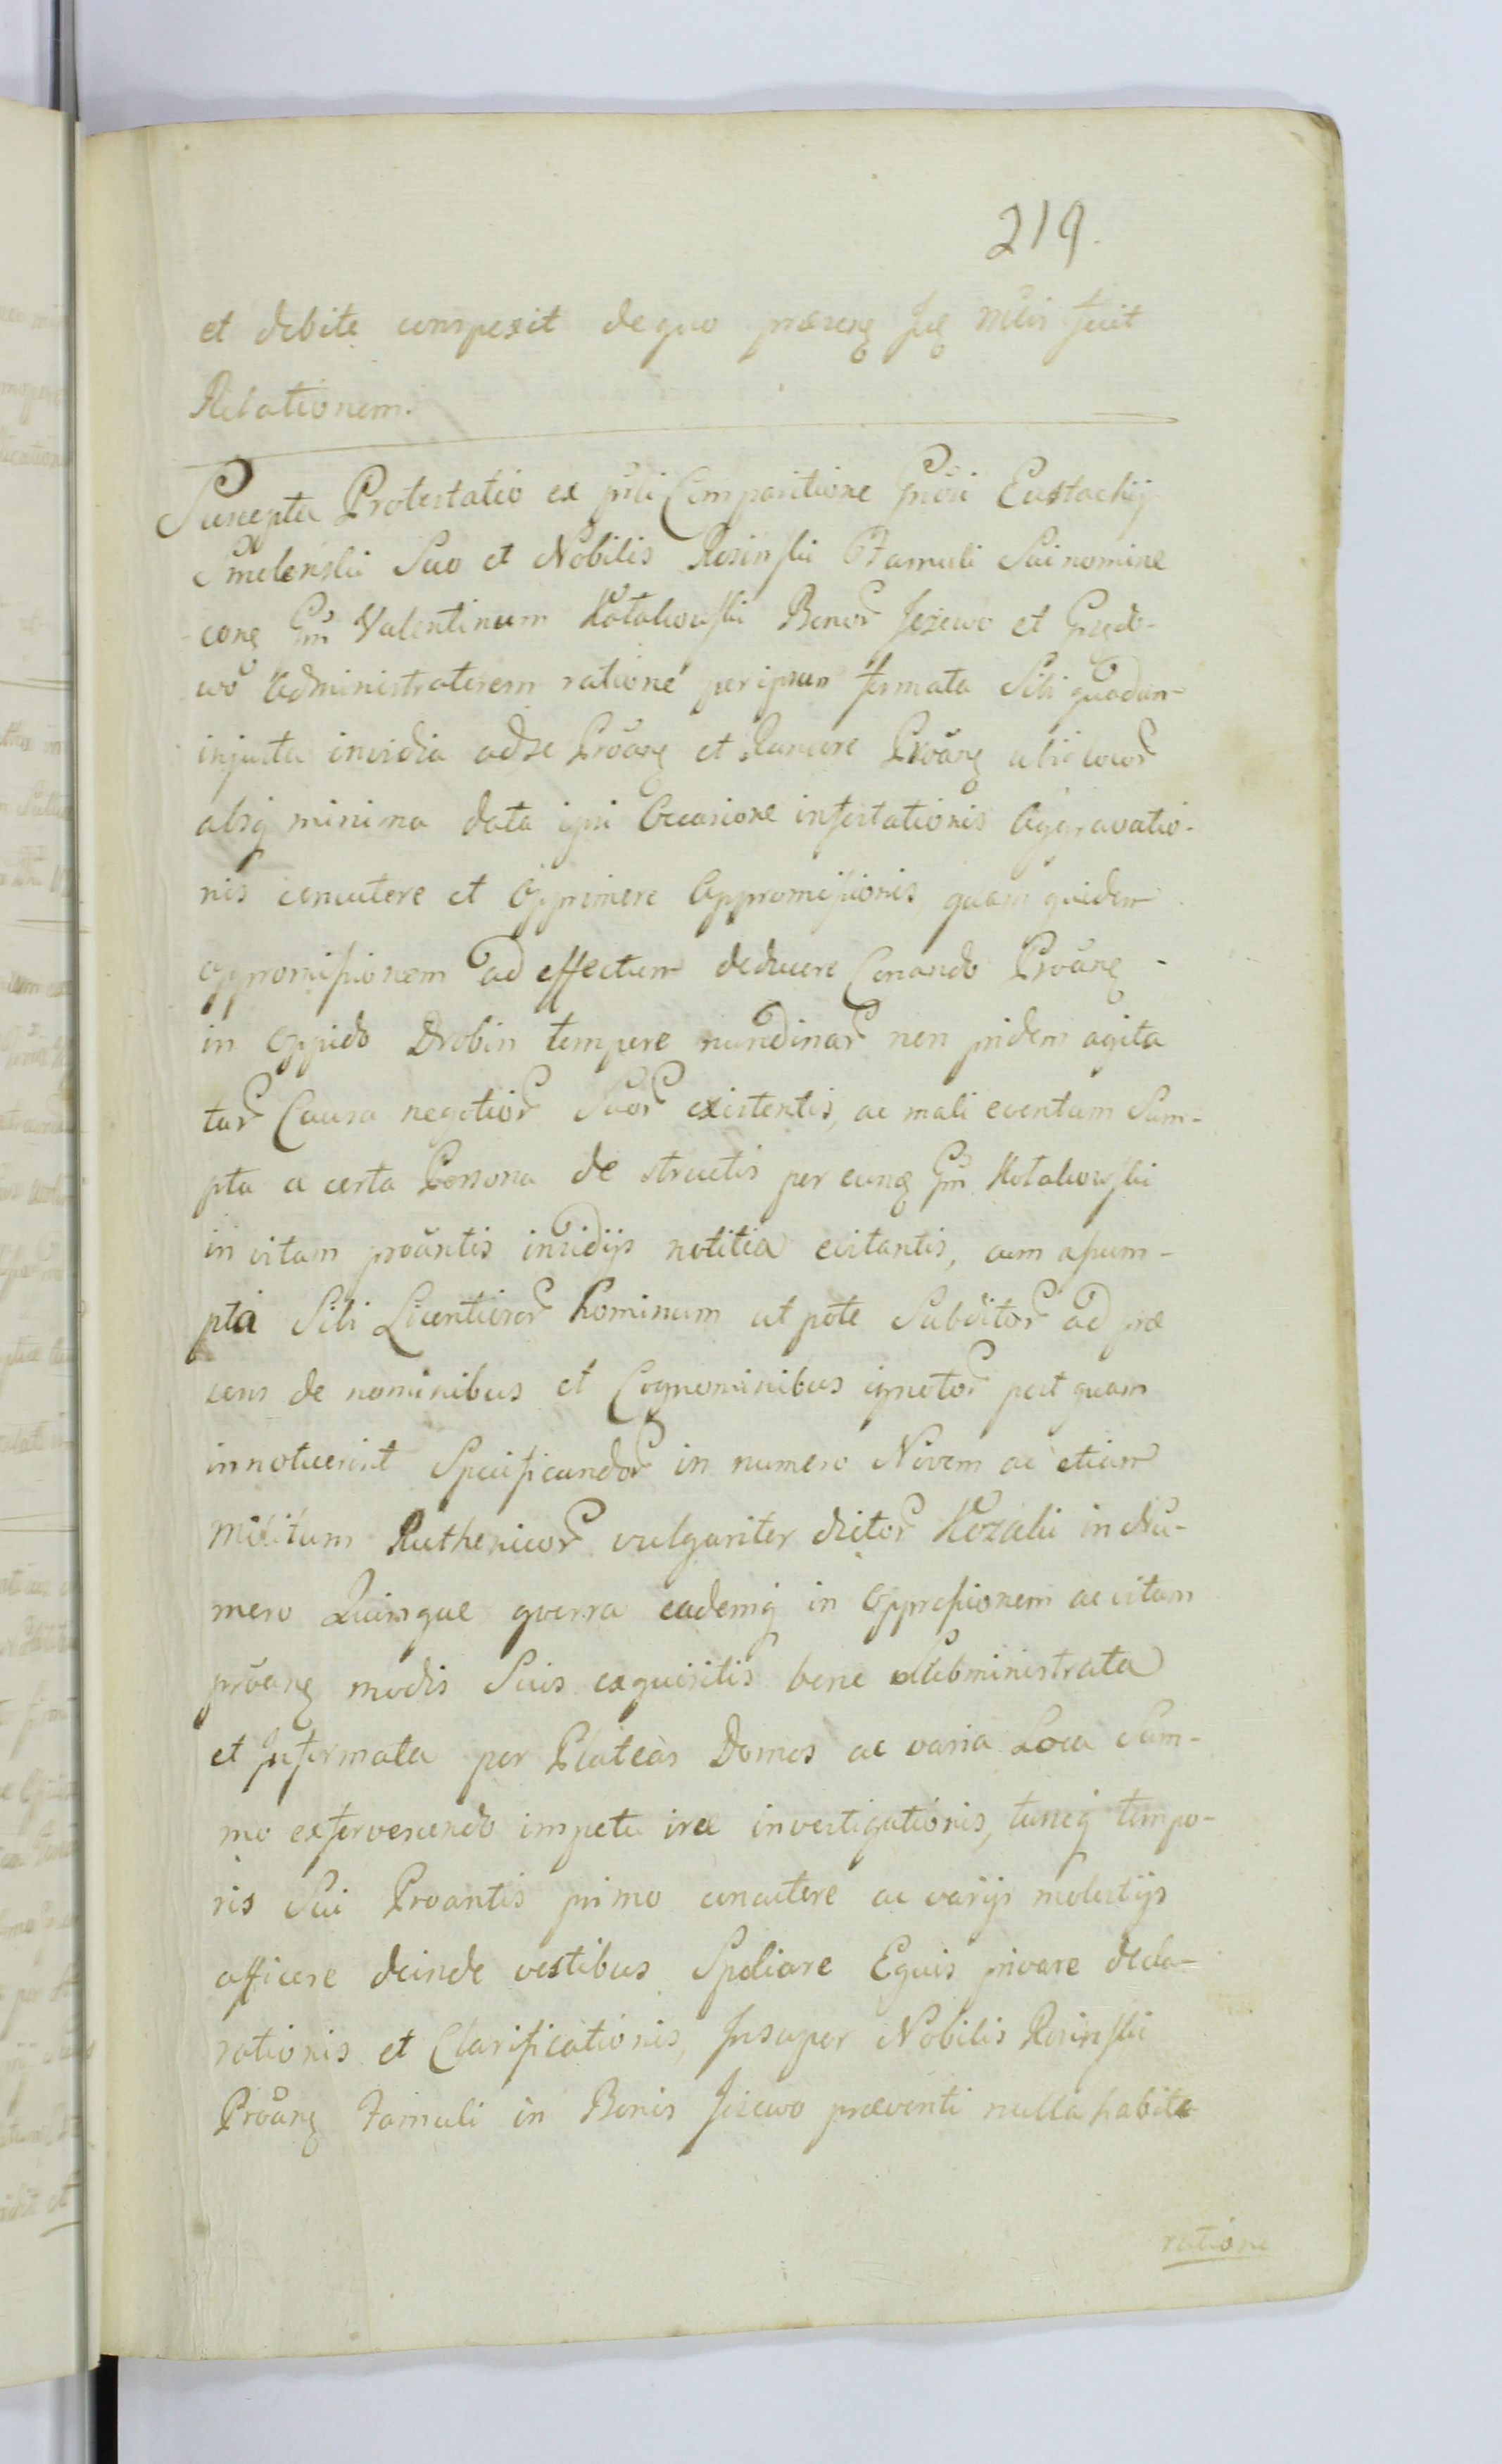 219.
et debite conspexit de quo præsens Jdē Mtlis fecit
Relationem.
Suscepta Protestatio ex pñli Comparitione Gñosi Eustachij
Smolenski Suo et Nobilis Rosinski Famuli Sui nomine
cong Gm Valentinum Kotakowski Bonor Jeżewo et Gzędo-
wo Administratorem ratione per ipsum formata Sibi quadam
injusta invidia ad se Proãng et Rancore Proãng ubi locor
absq minima data ipsi Occasione infestationis Aggravatio-
nis concutere et Opprimere Appromissionis, quam quidem
appromissionem ad effectum deducere Conando Proãng
in Oppido Drobin tempore nundinar non pridem agita
tar Causa negotior Suor existentis, ac mali eventum Sum-
pta a certa Persona de structis per eung Gm Kotakowski
in vitam proãntis insidijs notitia evitantis, cum assum-
pta Sibi Licentiosor hominum ut pote Subditor ad præ
sens de nominibus et Cognominibus ignotor post quam
innotuerint Specificandor in numero Novem ac etiam
Militum Ruthenicor vulgariter dictor Kozaki in Nu-
mero Quinque guerra eademq in Oppressionem ac vitam
proãng modis Suis exquisitis bene Subministrata
et Informata per Plateas Domos ac varia Loca Sum-
mo exfervescendo impetu iræ investigationis, tuncq tempo-
ris Sui Proantis primo concutere ac varijs molestijs
afficere deinde vestibus Spoliare Equis privare decla-
rationis et Clarificationis, Insuper Nobilis Rosinski
Proãng Famuli in Bonis Jeżewo præventi nulla habita
ratione